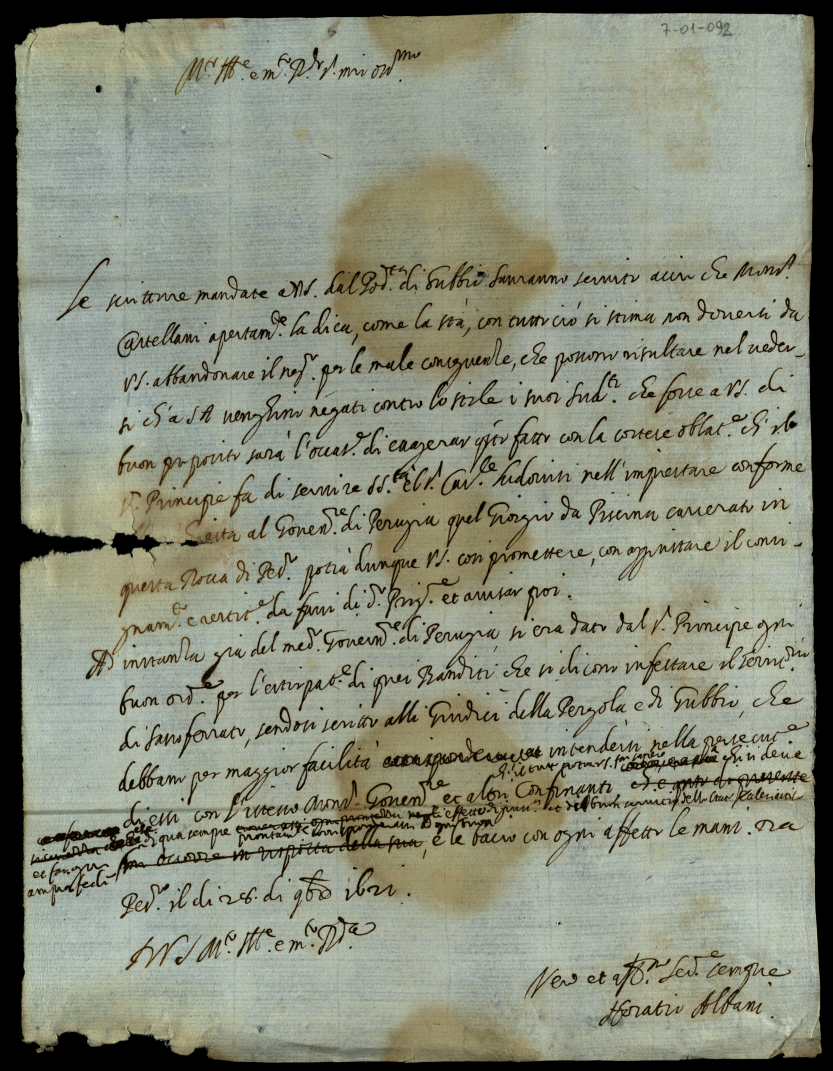 7-01-092
M.to Ill.e e m.to R.do s.r mio oss.mo
Le scritture mandate a VS. dal Pod.tà di Gubbio havranno servito acciò che Mons.r
Castellani apertam.te la dica, come la stà, con tutto ciò si stima non doversi da
VS. abbandonare il neg.o per le male conseguenze, che possono risultare nel veder-
si ch'a SA venghino negati contro lo stile i suoi sud.ti che forse a VS. di
buon proposito sarà l'occas.e di esagerar q.to fatto con la cortese oblat.e ch'il
s.r Principe fa di servire SS.tà e'l s.r Car.le Ludovisi nell'imprestare conforme
al Govern.re di Perugia quel Giorgio da Piscina carcerato in
questa Rocca di Pes.o potrà dunque VS. così promettere, con appuntare il consi-
gnam.to e certif.e da farsi di d.o Prig.e et avvisar poi.
Ad instanza già del med.o Govern.re di Perugia si era dato dal s.r Principe ogni
buon ord.e per l'estirpat.e di quei Banditi che si dicono infestare il territ.rio
di Sassoferrato, sendosi scritto alli Giudici della Pergola e di Gubbio, che
debbano per maggior facilità intendersi nella persecut.e
di essi con l'istesso Mons.r Govern.re et altri Confinanti
di qua sempre
et
in risposta della sua, e le bacio con ogni affetto le mani. Da
Pes.o il di 28. di 9bre 1621.
D VS M.to Ill.e e m.to R.da
Vero et aff.mo Ser.e sempre
Horatio Albani.